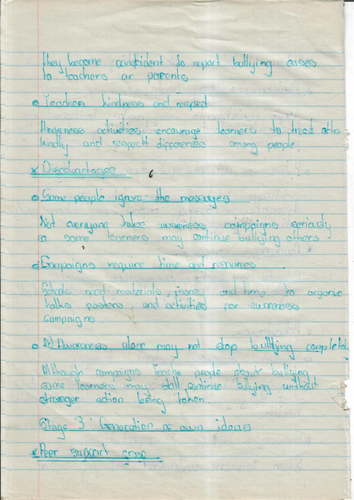 They become confident to report bullying cases
to teachers or parents
Teaches kindness and respect
Awareness activities encourage learners to treat others
kindly and respect differences among people.
x Disadvantages
Some people ignore the messages
Not everyone takes awareness campaigns seriously
so some learners may continue bullying others
Campaigns require time and resources
Schools need materials, money and time to organise
talks posters and activities for awareness
campaigns
Awareness alone may not stop bullying completely
Although campaigns teach people about bullying
some learners may still continue bullying without
stronger action being taken
Stage 3: Generation of own ideas
x Peer support group